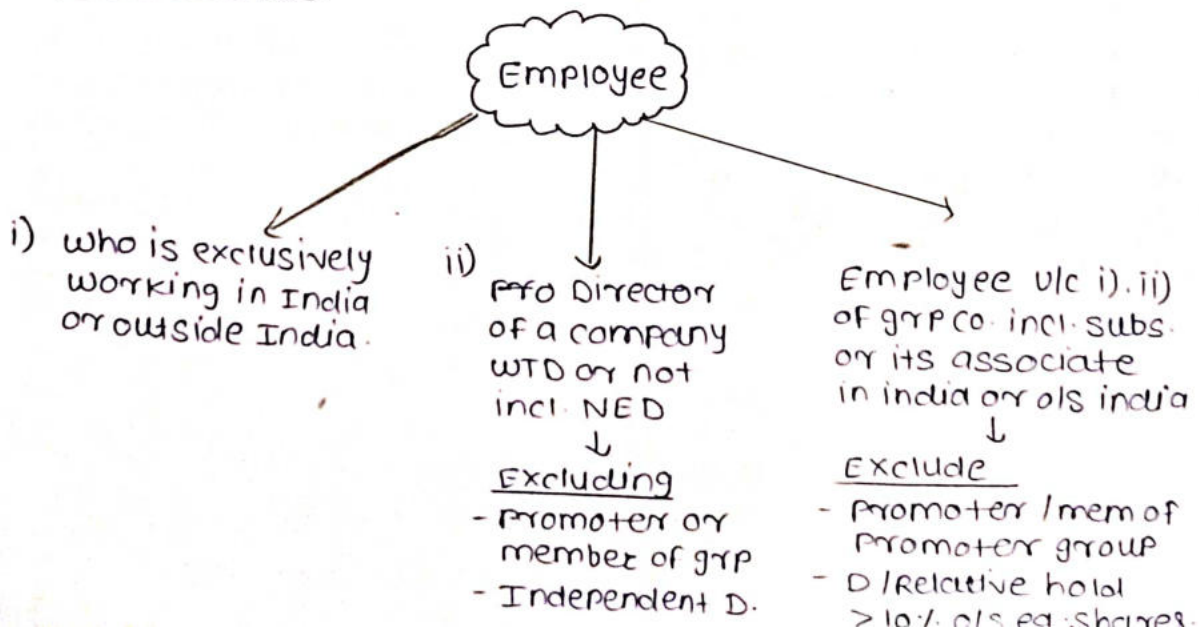 Employee
i) who is exclusively
working in India
or outside India.
ii)
Director
of a company
WTD or not
incl. NED
↓
Excluding
- promoter or
member of grp
- Independent D.
Employee u/c i).ii)
of grp co. incl. subs.
or its associate
in india or o/s india
↓
Exclude
- promoter / mem of
promoter group
- D / Relative hold
>10% o/s eq. shares.